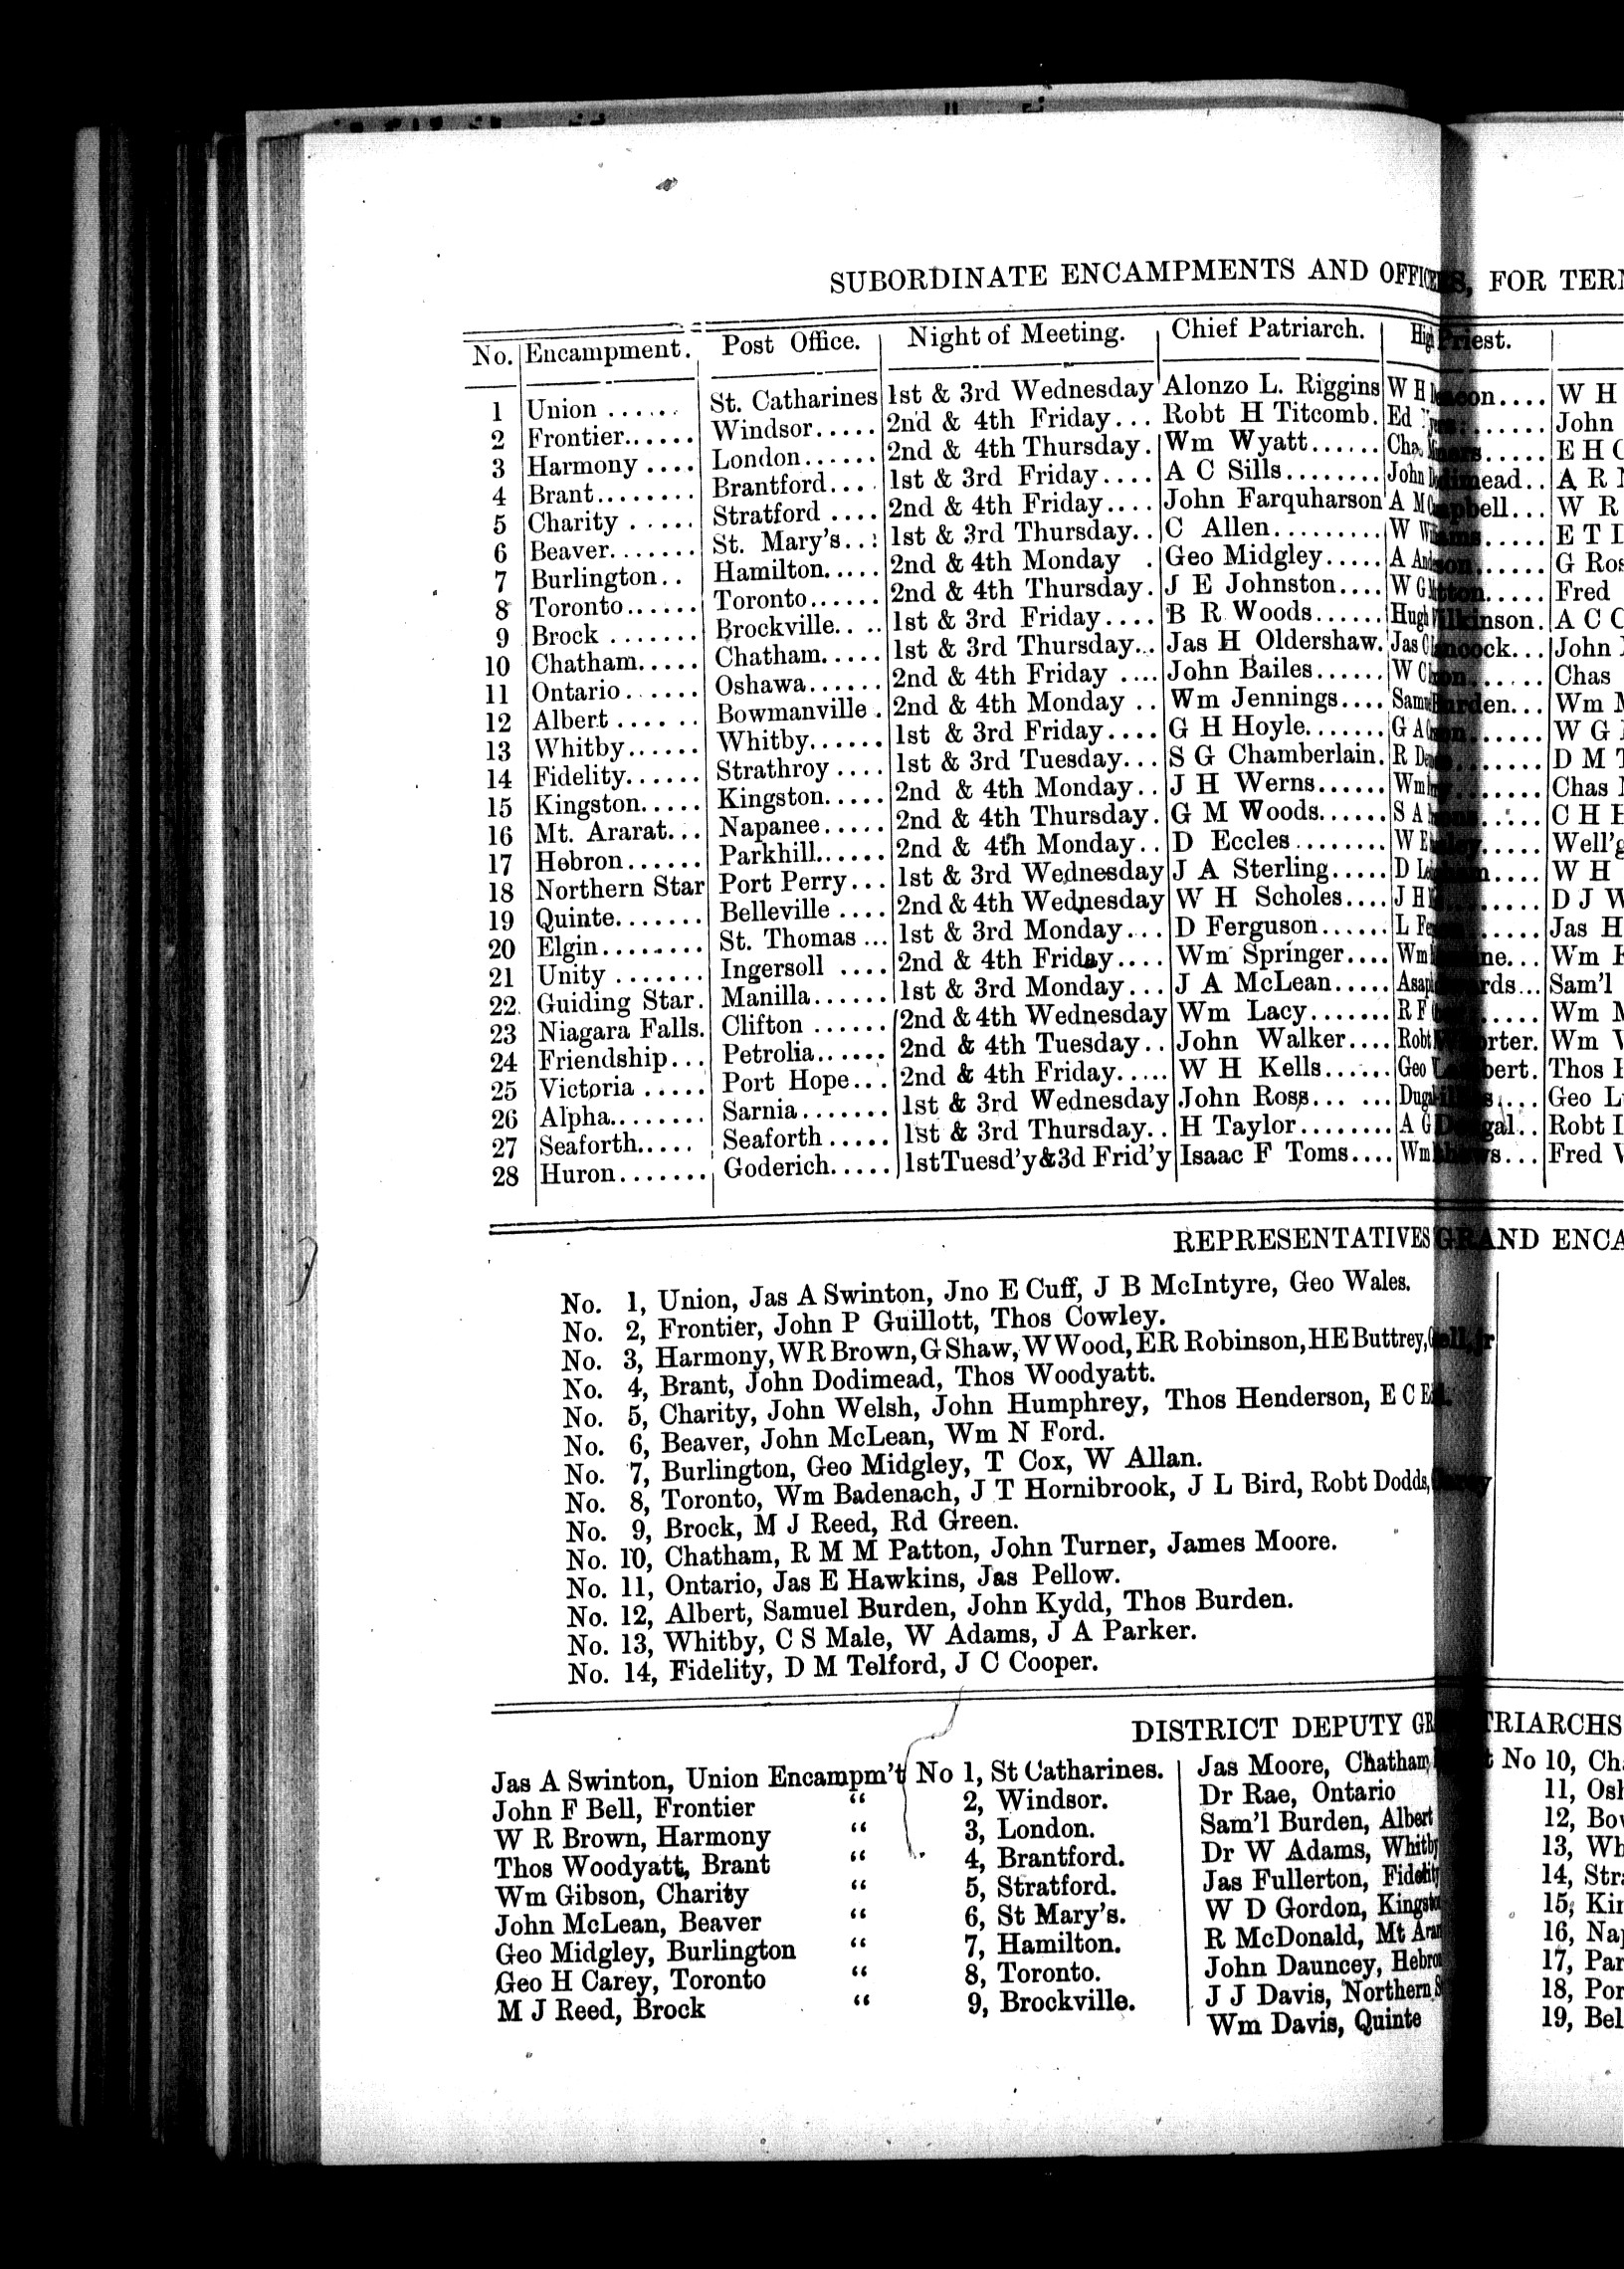 SUBORDINATE ENCAMPMENTS AND OFFICERS, FOR TER
No. Encampment. Post Office. Night of Meeting. Chief Patriarch. High Priest.
1 Union ...... St. Catharines 1st & 3rd Wednesday Alonzo L. Riggins W H .... W H
2 Frontier...... Windsor..... 2nd & 4th Friday... Robt H Titcomb. Ed ...... John
3 Harmony .... London...... 2nd & 4th Thursday. Wm Wyatt...... ..... E H
4 Brant........ Brantford.... 1st & 3rd Friday.... A C Sills........ John Dodimead.. A R
5 Charity ..... Stratford .... 2nd & 4th Friday.... John Farquharson A M Campbell... W R
6 Beaver....... St. Mary's..: 1st & 3rd Thursday.. C Allen......... W Williams..... E T
7 Burlington.. Hamilton..... 2nd & 4th Monday . Geo Midgley..... A Anderson...... G Ros
8 Toronto...... Toronto...... 2nd & 4th Thursday. J E Johnston.... W G ..... Fred
9 Brock ....... Brockville.. .. 1st & 3rd Friday.... B R Woods...... Hugh Wilkinson. A C
10 Chatham..... Chatham..... 1st & 3rd Thursday... Jas H Oldershaw. Jas ... John
11 Ontario ...... Oshawa...... 2nd & 4th Friday .... John Bailes...... W ...... Chas
12 Albert ...... Bowmanville . 2nd & 4th Monday .. Wm Jennings.... Samuel Burden... Wm
13 Whitby...... Whitby...... 1st & 3rd Friday.... G H Hoyle....... G A ...... W G
14 Fidelity...... Strathroy .... 1st & 3rd Tuesday... S G Chamberlain. R ....... D M
15 Kingston..... Kingston..... 2nd & 4th Monday.. J H Werns...... Wm ....... Chas
16 Mt. Ararat... Napanee..... 2nd & 4th Thursday. G M Woods...... S A ..... C H
17 Hebron...... Parkhill...... 2nd & 4th Monday.. D Eccles........ W ..... Well'g
18 Northern Star Port Perry... 1st & 3rd Wednesday J A Sterling..... D .... W H
19 Quinte....... Belleville .... 2nd & 4th Wednesday W H Scholes.... J H ...... D J W
20 Elgin......... St. Thomas ... 1st & 3rd Monday... D Ferguson...... L ...... Jas H
21 Unity ....... Ingersoll .... 2nd & 4th Friday.... Wm Springer.... Wm ... Wm
22. Guiding Star. Manilla...... 1st & 3rd Monday... J A McLean..... ... Sam'l
23 Niagara Falls. Clifton ...... 2nd & 4th Wednesday Wm Lacy....... R F ..... Wm
24 Friendship... Petrolia...... 2nd & 4th Tuesday.. John Walker.... Robt . Wm
25 Victoria ..... Port Hope... 2nd & 4th Friday..... W H Kells...... Geo . Thos
26 Alpha........ Sarnia....... 1st & 3rd Wednesday John Ross... ... .... Geo L
27 Seaforth..... Seaforth ..... 1st & 3rd Thursday.. H Taylor........ A G .. Robt
28 Huron....... Goderich..... 1stTuesd'y&3d Frid'y Isaac F Toms.... Wm ... Fred
REPRESENTATIVES GRAND ENCA
No. 1, Union, Jas A Swinton, Jno E Cuff, J B McIntyre, Geo Wales.
No. 2, Frontier, John P Guillott, Thos Cowley.
No. 3, Harmony, W R Brown, G Shaw, W Wood, E R Robinson, H E Buttrey, jr
No. 4, Brant, John Dodimead, Thos Woodyatt.
No. 5, Charity, John Welsh, John Humphrey, Thos Henderson, E C
No. 6, Beaver, John McLean, Wm N Ford.
No. 7, Burlington, Geo Midgley, T Cox, W Allan.
No. 8, Toronto, Wm Badenach, J T Hornibrook, J L Bird, Robt Dodds,
No. 9, Brock, M J Reed, Rd Green.
No. 10, Chatham, R M M Patton, John Turner, James Moore.
No. 11, Ontario, Jas E Hawkins, Jas Pellow.
No. 12, Albert, Samuel Burden, John Kydd, Thos Burden.
No. 13, Whitby, C S Male, W Adams, J A Parker.
No. 14, Fidelity, D M Telford, J C Cooper.
DISTRICT DEPUTY TRIARCHS
Jas A Swinton, Union Encampm't No 1, St Catharines.
John F Bell, Frontier “ 2, Windsor.
W R Brown, Harmony “ 3, London.
Thos Woodyatt, Brant “ 4, Brantford.
Wm Gibson, Charity “ 5, Stratford.
John McLean, Beaver “ 6, St Mary's.
Geo Midgley, Burlington “ 7, Hamilton.
Geo H Carey, Toronto “ 8, Toronto.
M J Reed, Brock “ 9, Brockville.
Jas Moore, Chatham No 10, Cha
Dr Rae, Ontario 11, Osh
Sam'l Burden, Albert 12, Bow
Dr W Adams, Whitby 13, Wh
Jas Fullerton, Fidelity 14, Stra
W D Gordon, Kingston 15, Kin
R McDonald, Mt Ararat 16, Nap
John Dauncey, Hebron 17, Par
J J Davis, Northern S 18, Por
Wm Davis, Quinte 19, Bel